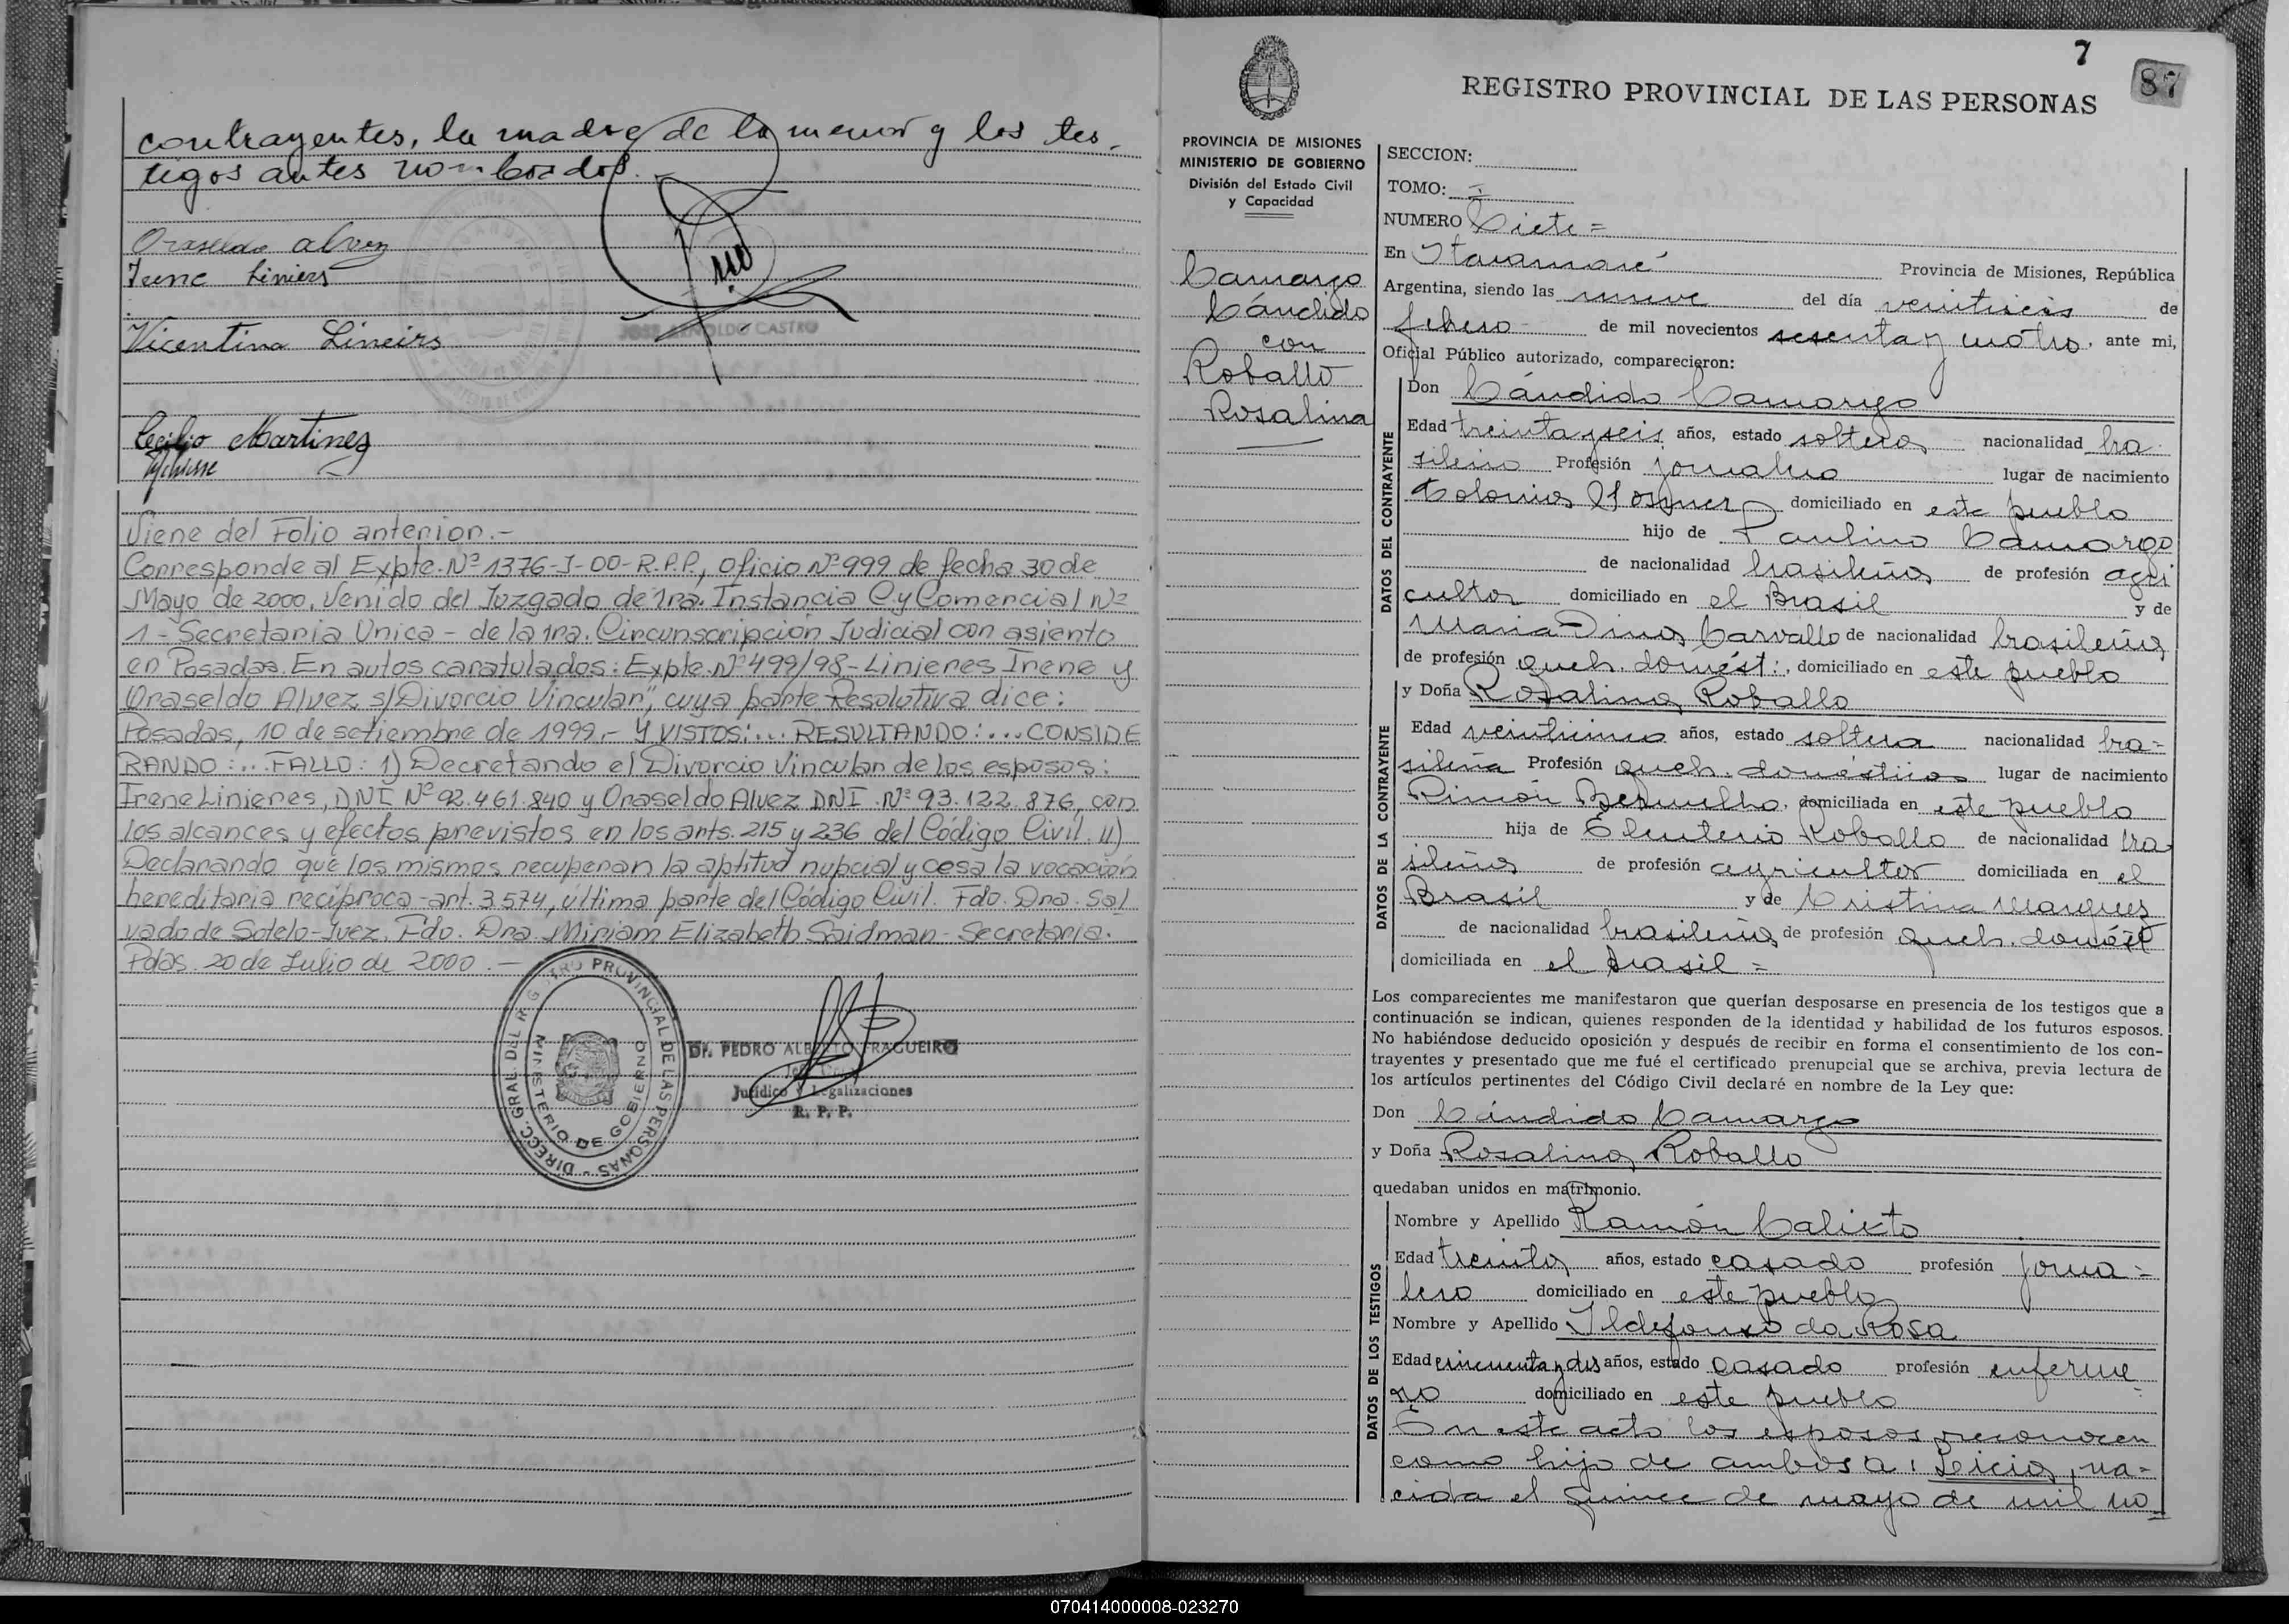 contrayentes, la madre de la menor y los tes-
tigos antes nombrados.-
Oraseldo Alvez
Irene Liniers
JOSE ARNOLDO CASTRO
Vicentina Lineirs
Cecilio Martinez
Viene del Folio anterior.-
Corresponde al Expte. Nº 1376-J-00-R.P.P., Oficio Nº 999 de fecha 30 de
Mayo de 2000, venido del Juzgado de 1ra. Instancia C. y Comercial Nº
1 - Secretaria Unica - de la 1ra. Circunscripción Judicial con asiento
en Posadas. En autos caratulados: Expte. Nº 499/98 - Linieres Irene y
Oraseldo Alvez s/Divorcio Vincular", cuya parte Resolutiva dice:
Posadas, 10 de setiembre de 1999.- Y VISTOS:... RESULTANDO:... CONSIDE
RANDO:... FALLO: 1) Decretando el Divorcio Vincular de los esposos:
Irene Linieres, DNI Nº 92.461.840 y Oraseldo Alvez DNI. Nº 93.122.876, con
los alcances y efectos previstos en los arts. 215 y 236 del Código Civil. II)
Declarando que los mismos recuperan la aptitud nupcial y cesa la vocación
hereditaria recíproca - art. 3.574, última parte del Código Civil. Fdo. Dra. Sal
vado de Sotelo - Juez. Fdo. Dra. Miriam Elizabeth Saidman - Secretaria.
Pdas. 20 de Julio de 2000.-
DIRECC. GRAL. DEL REGISTRO PROVINCIAL DE LAS PERSONAS -
MINISTERIO DE GOBIERNO
Dr. PEDRO ALBERTO FRAGUEIRO
Jurídico y Legalizaciones
R. P. P.
7
87
REGISTRO PROVINCIAL DE LAS PERSONAS
PROVINCIA DE MISIONES
MINISTERIO DE GOBIERNO
División del Estado Civil
y Capacidad
Camargo
Cándido
con
Roballo
Rosalina
SECCION:
TOMO: I
NUMERO Siete =
En Itacaruaré Provincia de Misiones, República
Argentina, siendo las nueve del día veintiseis de
febrero de mil novecientos sesenta y cuatro, ante mi,
Oficial Público autorizado, comparecieron:
DATOS DEL CONTRAYENTE
Don Cándido Camargo
Edad treinta y seis años, estado soltero nacionalidad bra
sileña Profesión jornalero lugar de nacimiento
Colonia domiciliado en este pueblo
hijo de Paulino Camargo
de nacionalidad brasileña de profesión agri
cultor domiciliado en el Brasil y de
Maria Dina Carvallo de nacionalidad brasileña
de profesión queh. domést:, domiciliado en este pueblo
DATOS DE LA CONTRAYENTE
y Doña Rosalina Roballo
Edad veinticinco años, estado soltera nacionalidad bra=
sileña Profesión queh. domésticos lugar de nacimiento
Rincón Bermelho, domiciliada en este pueblo
hija de Eleuterio Roballo de nacionalidad bra
sileña de profesión agricultor domiciliada en el
Brasil y de Cristina Marques
de nacionalidad brasileña de profesión queh. domést
domiciliada en el Brasil =
Los comparecientes me manifestaron que querían desposarse en presencia de los testigos que a
continuación se indican, quienes responden de la identidad y habilidad de los futuros esposos.
No habiéndose deducido oposición y después de recibir en forma el consentimiento de los con-
trayentes y presentado que me fué el certificado prenupcial que se archiva, previa lectura de
los artículos pertinentes del Código Civil declaré en nombre de la Ley que:
Don Cándido Camargo
y Doña Rosalina Roballo
quedaban unidos en matrimonio.
DATOS DE LOS TESTIGOS
Nombre y Apellido Ramón Calixto
Edad treinta años, estado casado profesión jorna=
lero domiciliado en este pueblo
Nombre y Apellido Ildefonso da Rosa
Edad cincuenta y dos años, estado casado profesión enferme
ro domiciliado en este pueblo
En este acto los esposos reconocen
como hijo de ambos a: Leicia, na=
cida el quince de mayo de mil no=
070414000008-023270